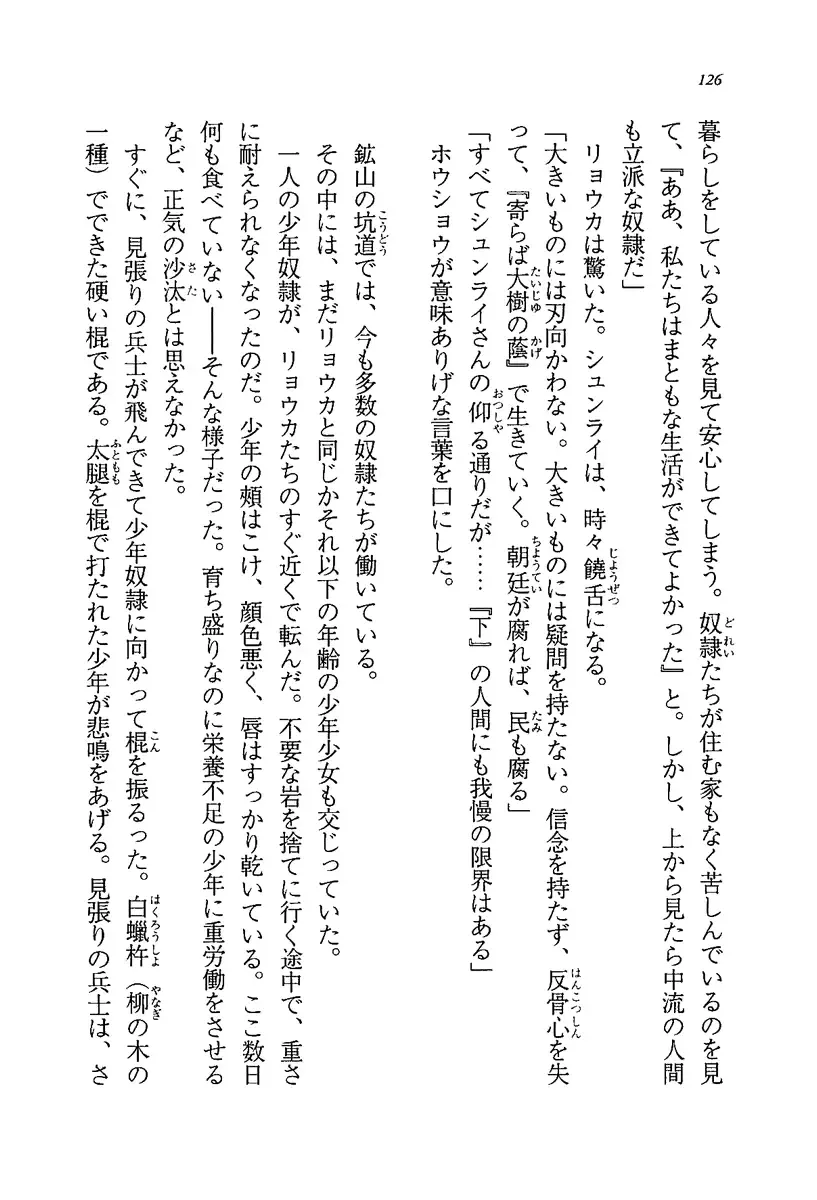 126
暮らしをしている人々を見て安心してしまう。奴隷たちが住む家もなく苦しんでいるのを見
て、『ああ、私たちはまともな生活ができてよかった』と。しかし、上から見たら中流の人間
も立派な奴隷だ」
リョウカは驚いた。シュンライは、時々饒舌になる。
「大きいものには刃向かわない。大きいものには疑問を持たない。信念を持たず、反骨心を失
って、『寄らば大樹の蔭』で生きていく。朝廷が腐れば、民も腐る」
「すべてシュンライさんの仰る通りだが……『下』の人間にも我慢の限界はある」
ホウショウが意味ありげな言葉を口にした。
鉱山の坑道では、今も多数の奴隷たちが働いている。
その中には、まだリョウカと同じかそれ以下の年齢の少年少女も交じっていた。
一人の少年奴隷が、リョウカたちのすぐ近くで転んだ。不要な岩を捨てに行く途中で、重さ
に耐えられなくなったのだ。少年の頬はこけ、顔色悪く、唇はすっかり乾いている。ここ数日
何も食べていない――そんな様子だった。育ち盛りなのに栄養不足の少年に重労働をさせる
など、正気の沙汰とは思えなかった。
すぐに、見張りの兵士が飛んできて少年奴隷に向かって棍を振るった。白蠟杵（柳の木の
一種）でできた硬い棍である。太腿を棍で打たれた少年が悲鳴をあげる。見張りの兵士は、さ